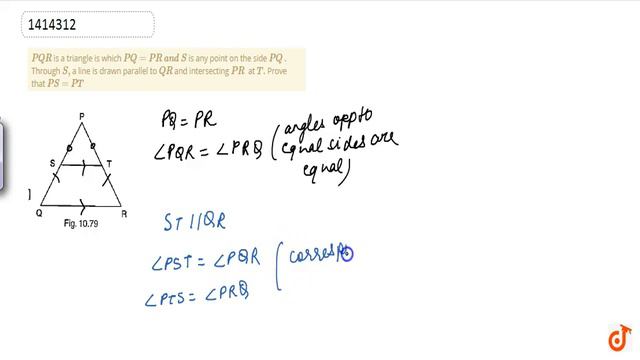 1414312
PQR is a triangle is which PQ = PR and S is any point on the side PQ .
Through S, a line is drawn parallel to QR and intersecting PR at T. Prove
that PS = PT
P
S
T
Q
R
Fig. 10.79
PQ = PR
∠PQR = ∠PRQ (angles opp to
equal sides are
equal)
ST || QR
∠PST = ∠PQR (correspo
∠PTS = ∠PRQ